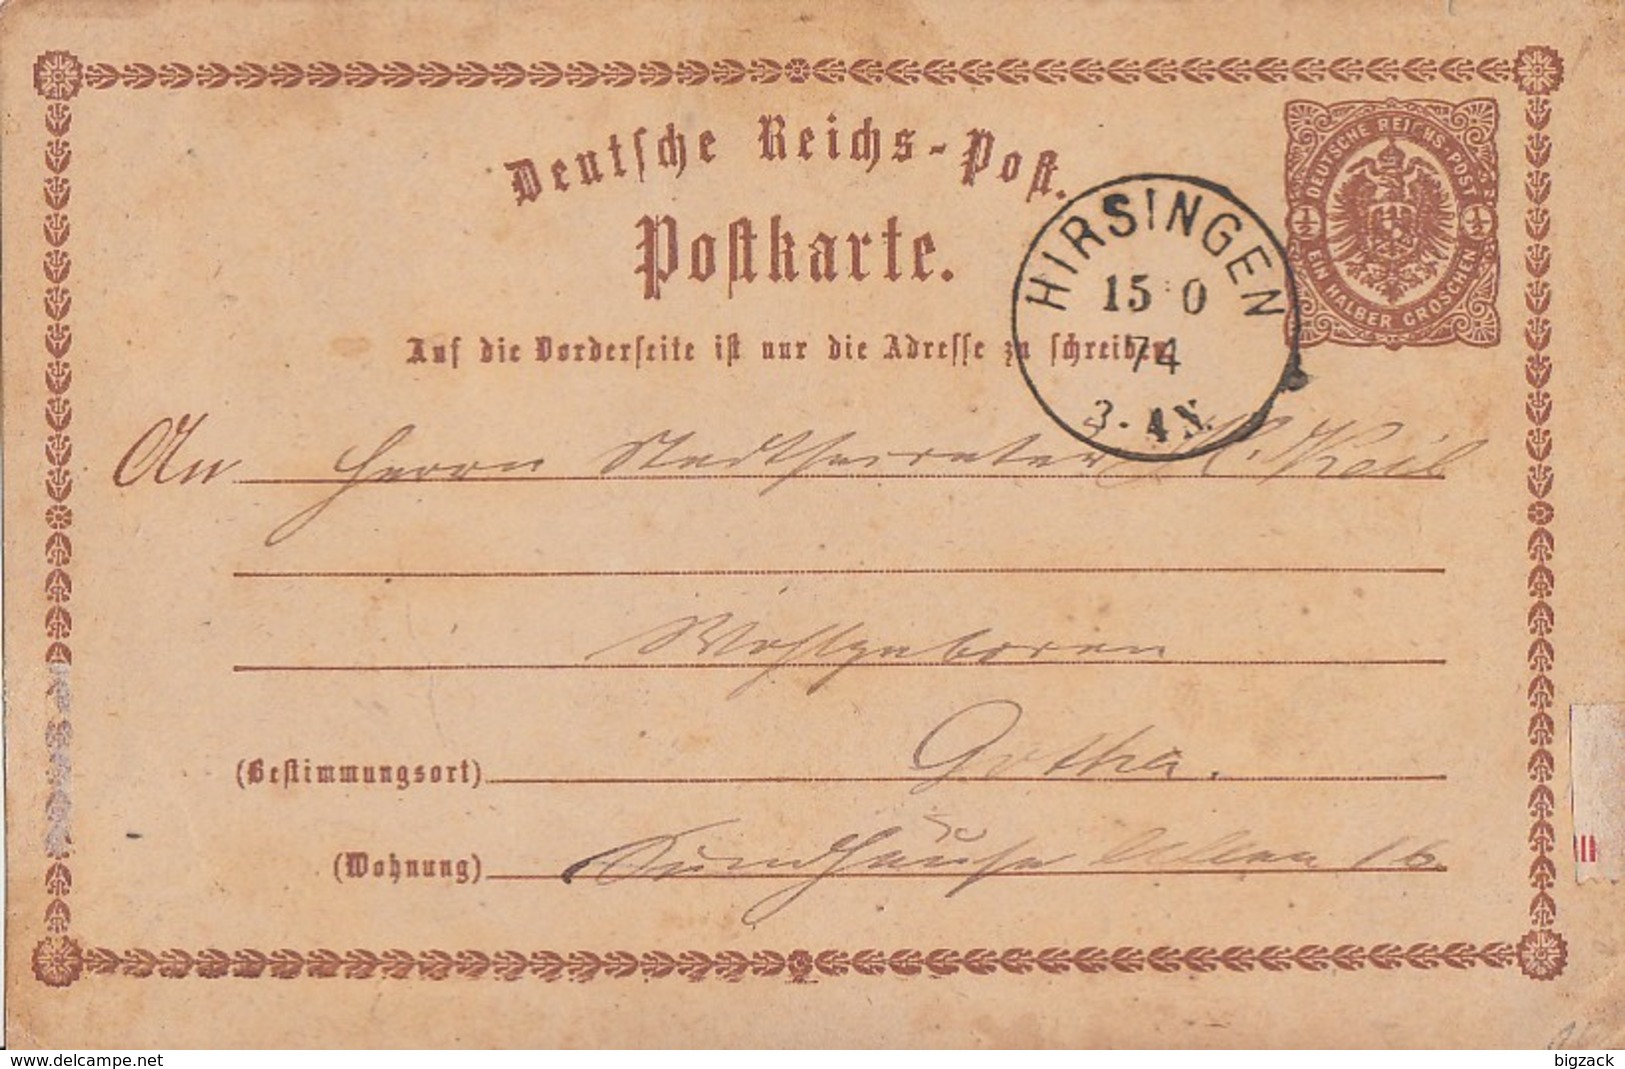 Deutsche Reichs-Post.
DEUTSCHE REICHS-POST
½ ½
EIN HALBER GROSCHEN
Postkarte.
HIRSINGEN
15 0
74
3-4 N.
Auf die Vorderseite ist nur die Adresse zu schreiben.
An Herrn H. Keil
Wohlgeboren
(Bestimmungsort) Gotha.
(Wohnung) Sundhäuser Allee 16.
www.delcampe.net
bigzack